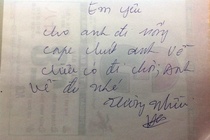 Em yêu
cho anh đi uống
cafe chút anh về
chiều có đi chơi, Anh
về đi nhé
thương nhiều